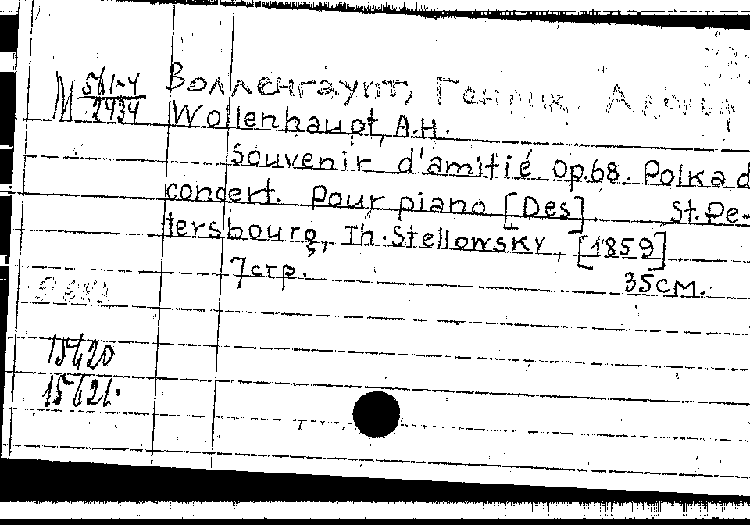 М 561-4
2434
Волленгаупт, Генрик. Адольф
Wollenhaupt, A.H.
Souvenir d'amitié Op.68. Polka d
concert. Pour piano [Des]. St.Pe-
tersbourg, Th. Stellowsky, [1859]
7 стр. 35 см.
15620
15621.